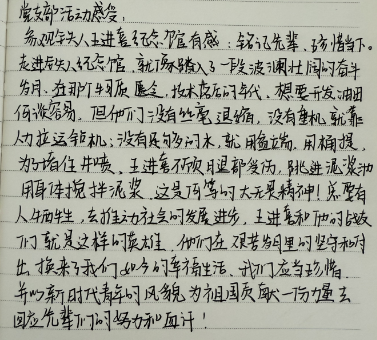 党支部活动感受:
参观铁人王进喜纪念馆有感:铭记先辈、珍惜当下。
走进铁人纪念馆,就仿佛踏入了一段波澜壮阔的奋斗
岁月。在那个物质匮乏、技术落后的年代,想要开发油田
何谈容易,但他们没有丝毫退缩,没有吊机,就靠
人力拉运钻机;没有足够的水,就用盆端、用桶提,
为了堵住井喷,王进喜不顾腿部受伤,跳进泥浆池
用身体搅拌泥浆。这是何等的大无畏精神!总要有
人牺牲,去推动社会的发展进步,王进喜和他的战友
们就是这样的英雄。他们在艰苦岁月里的坚守和付
出,换来了我们如今的幸福生活,我们应当珍惜,
并以新时代青年的风貌,为祖国贡献一份力量,去
回应先辈们的努力和血汗!